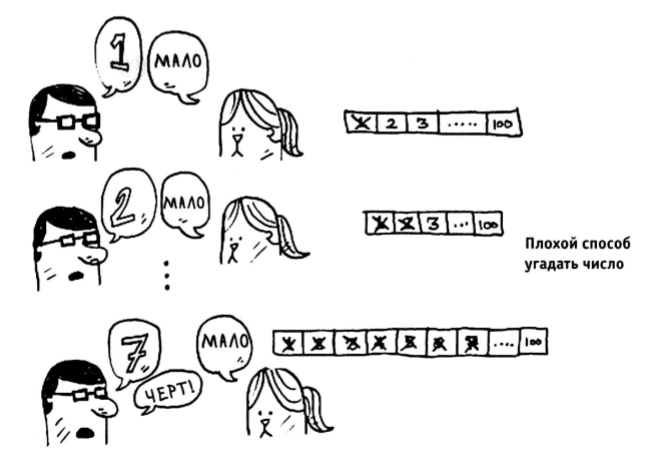 1 МАЛО
1 2 3 ..... 100
2 МАЛО
1 2 3 ... 100
Плохой способ
угадать число
7 МАЛО
ЧЕРТ!
1 2 3 4 5 6 7 .... 100